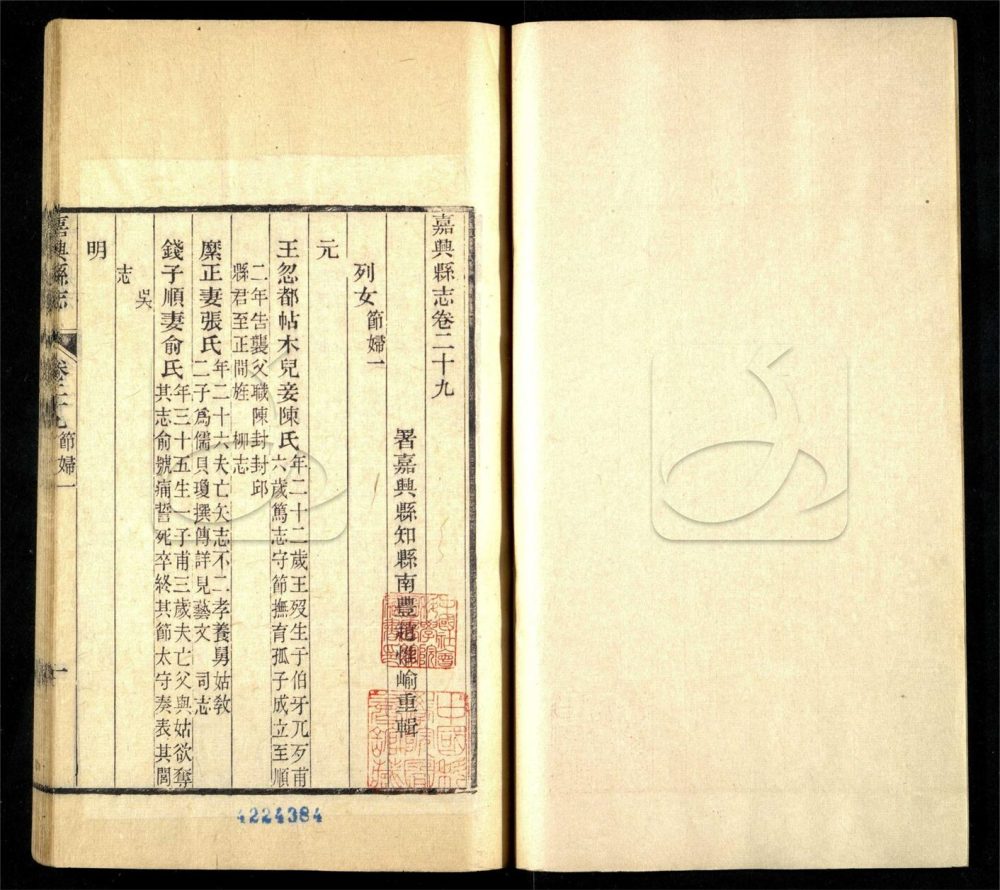 嘉興縣志卷二十九
署嘉興縣知縣南豐趙惟崳重輯
列女 節婦一
元
王忽都帖木兒妾陳氏 年二十二歲王歿生于伯牙兀歹甫
六歲篤志守節撫育孤子成立至順
二年告襲父職陳封封邱
縣君至正間旌 柳志
縻正妻張氏 年二十六夫亡矢志不二孝養舅姑敎
二子爲儒貝瓊撰傳詳見藝文 司志
錢子順妻俞氏 年三十五生一子甫三歲夫亡父與姑欲奪
其志俞號痛誓死卒終其節太守奏表其閭
吳
志
明
嘉興縣志 卷二十九 節婦一 一
4224384